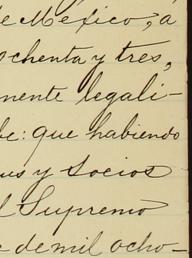 de México, á
ochenta y tres,
mente legali-
be: que habiendo
us y socios
l Supremo
e de mil ocho-